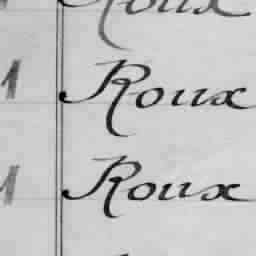 Roux
1 Roux
1 Roux